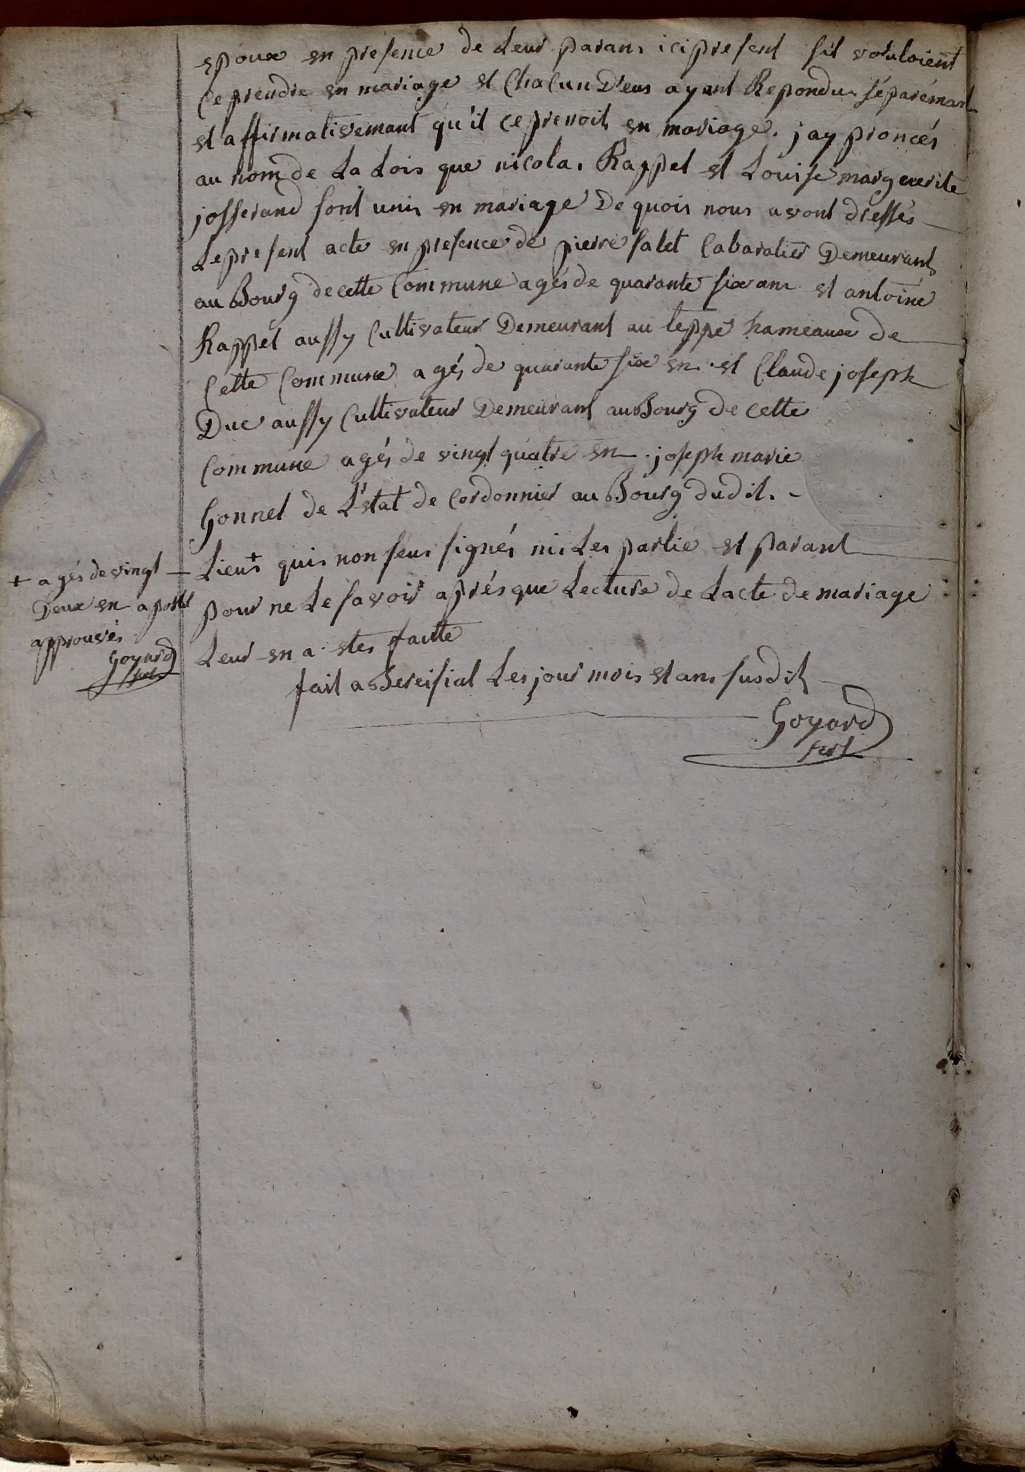 epoux en presence de Leur parans ici present sil vouloient
ce prendre en mariage et Chacun D'eus ayant Repondu séparémant
et affirmativemant qu'il ce prenoit en mariage. j'ay proncés
au nom de La Lois que nicolas Rappet et Louise margeverite
josserand sont unis en mariage De quois nous avont dressés
Le present acte en presence de pierre salet Cabaratier Demeurant
au Bourg de cette Commune agés de quarante six ans et antoine
Rappet aussy Cultivateur Demeurant au teppe hameaux de
Cette Commune agés de quarante six en et Claude joseph
Duc aussy Cultivateur Demeurant au Bourg de cette
Commune agés de vingt quatre en joseph marie
Gonnet de L'état de Cordonnier au Bourg dudit
Lieux + quis non seus signés ni Les partie et parant
pour ne Le savoir après que Lecture de Lacte de mariage
Leur en a etes faitte
fait a Bereisiat Les jour mois et ans susdit
Goyard
+ agés de vingt
Deux en
approuvés
Goyard